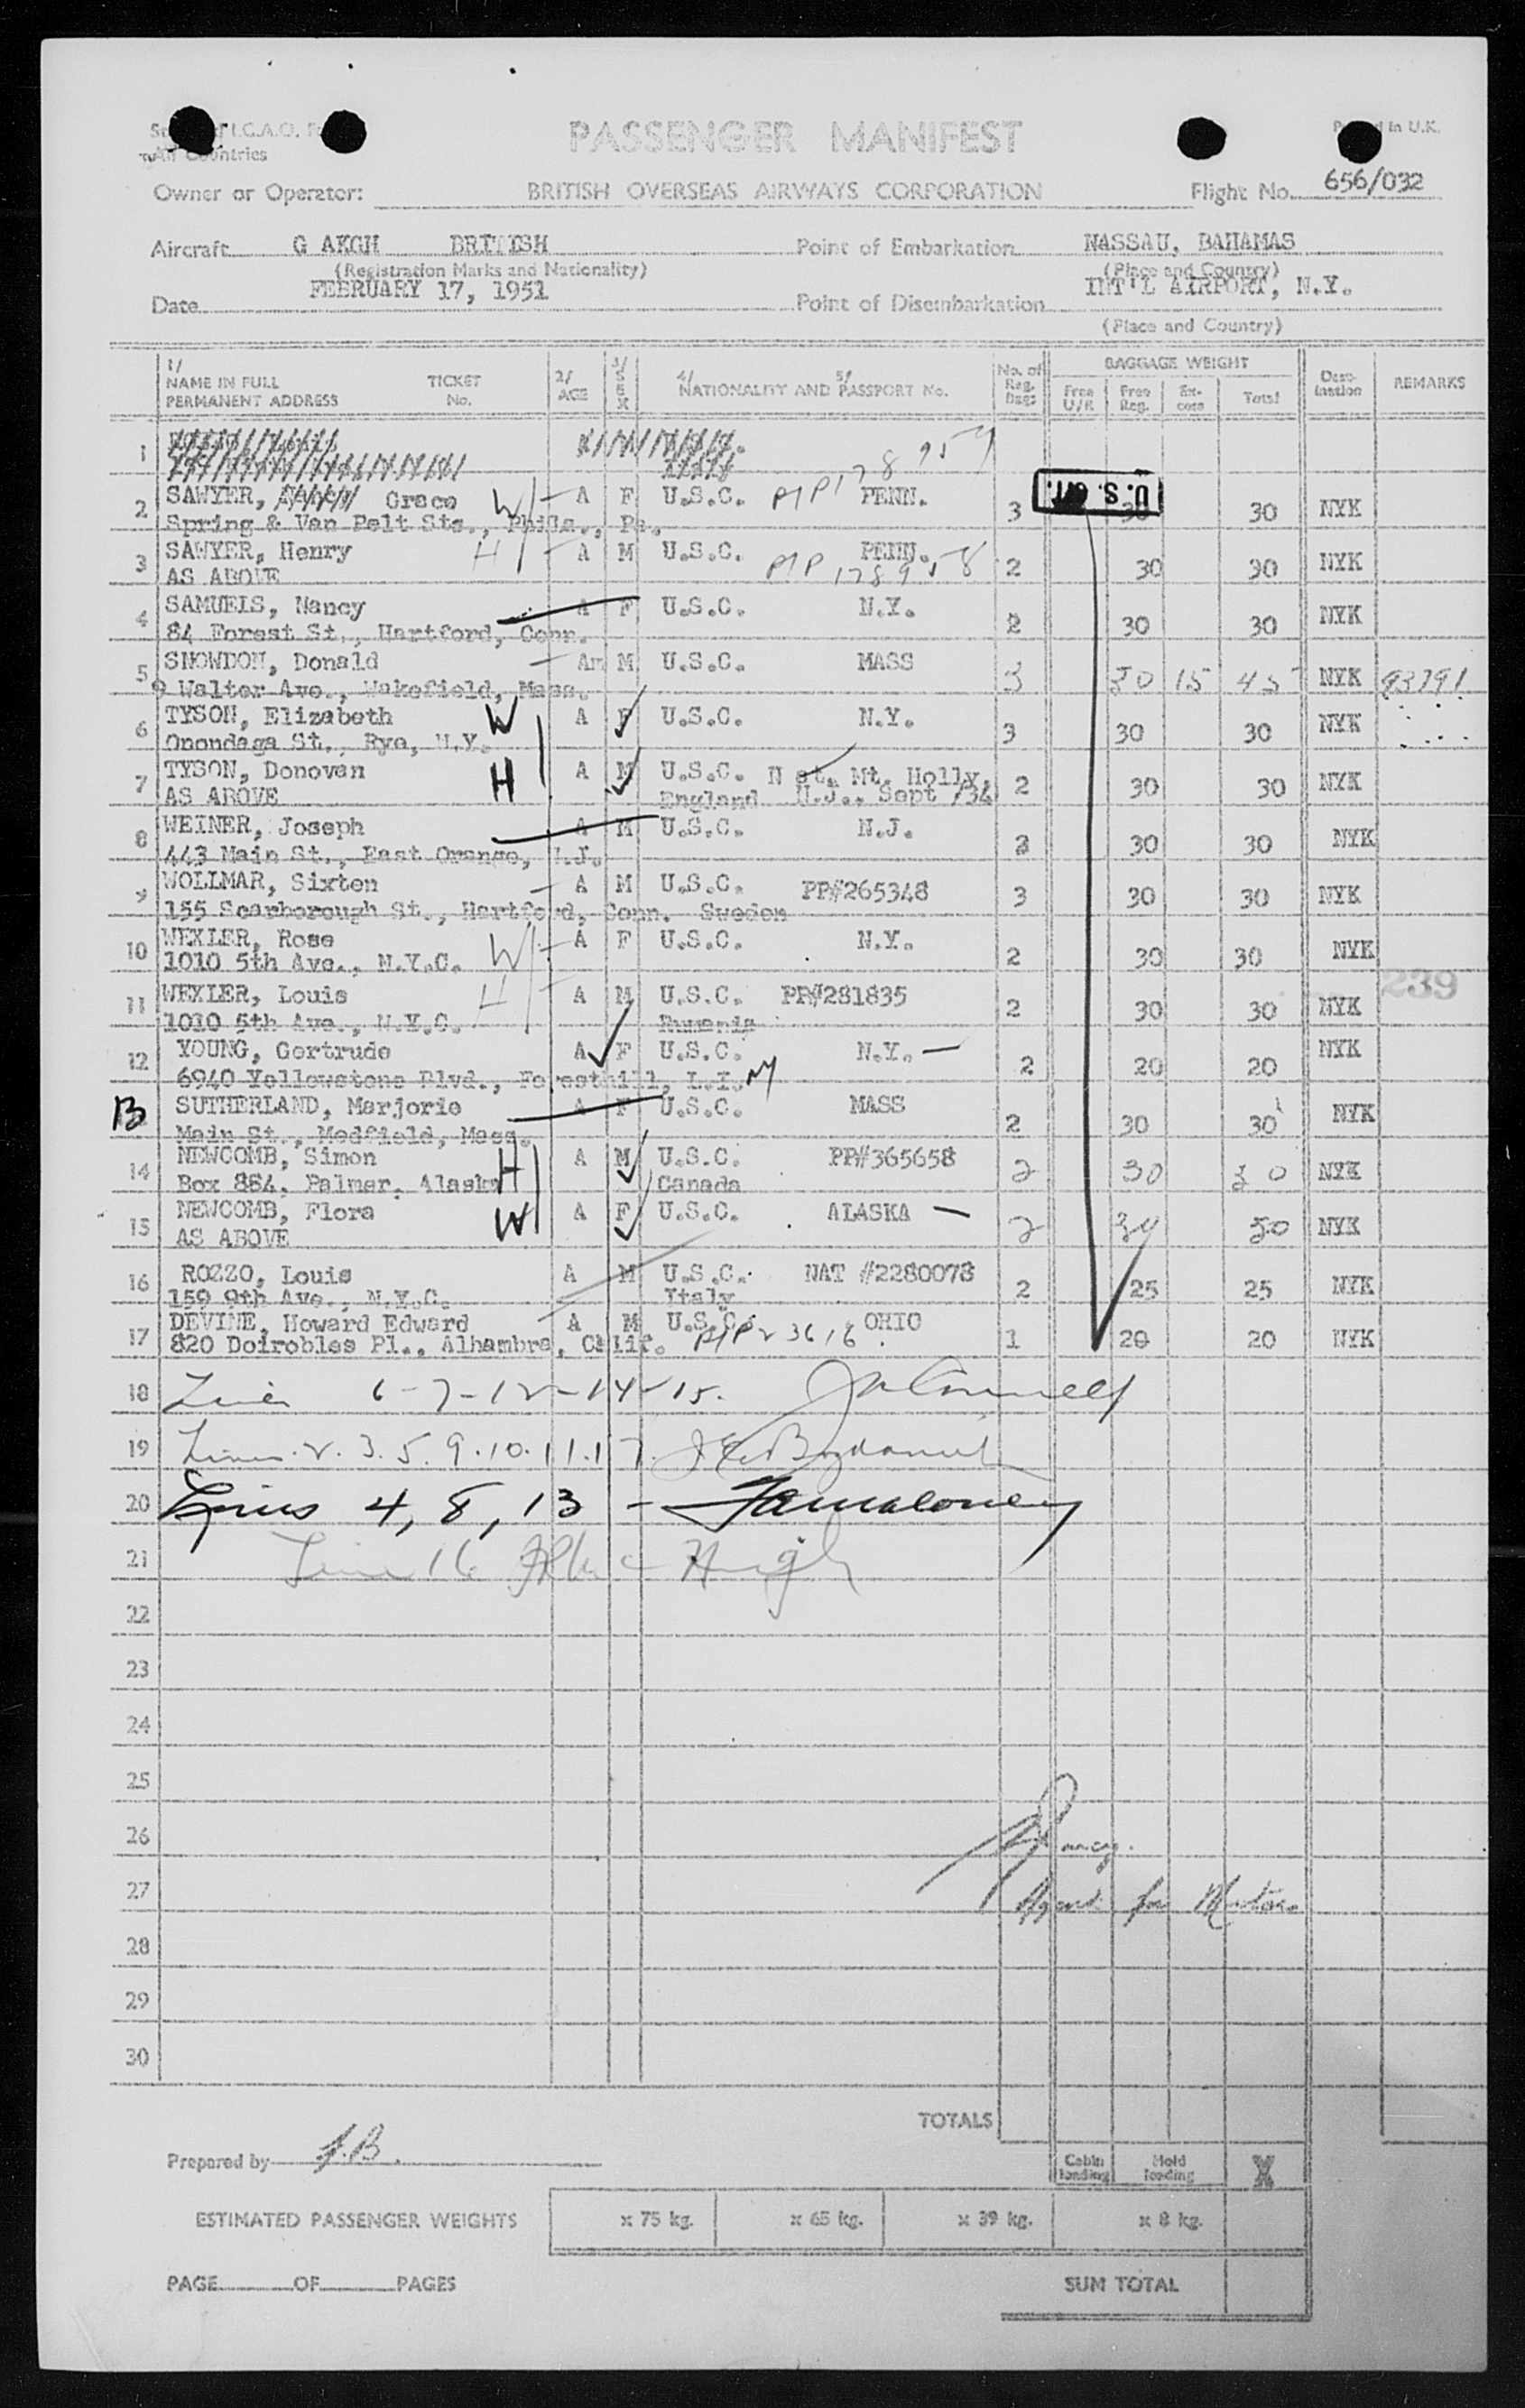 PASSENGER MANIFEST
Printed in U.K.
All Countries
Owner or Operator: BRITISH OVERSEAS AIRWAYS CORPORATION Flight No. 656/032
Aircraft G AKGH BRITISH Point of Embarkation NASSAU, BAHAMAS
(Registration Marks and Nationality) (Place and Country)
Date FEBRUARY 17, 1951 Point of Disembarkation INT'L AIRPORT, N.Y.
(Place and Country)
1/ NAME IN FULL PERMANENT ADDRESS TICKET No. 2/ AGE 3/ SEX 4/ 5/ NATIONALITY AND PASSPORT No. No. of Reg. Bags BAGGAGE WEIGHT Free U/R Free Reg. Ex-cess Total Destination REMARKS
1
2 SAWYER, Grace W A F U.S.C. PENN. 3 30 30 NYK
Spring & Van Pelt Sts., Phila., Pa.
U.S. CIT.
3 SAWYER, Henry H A M U.S.C. PENN. PP 178958 2 30 30 NYK
AS ABOVE
4 SAMUELS, Nancy A F U.S.C. N.Y. 2 30 30 NYK
84 Forest St., Hartford, Conn.
5 SNOWDON, Donald A M U.S.C. MASS 3 30 15 45 NYK 93791
9 Walter Ave., Wakefield, Mass.
6 TYSON, Elizabeth W A F U.S.C. N.Y. 3 30 30 NYK
Onondaga St., Rye, N.Y.
7 TYSON, Donovan H A M U.S.C. N at. Mt. Holly, 2 30 30 NYK
AS ABOVE England N.J., Sept /34
8 WEINER, Joseph A M U.S.C. N.J. 2 30 30 NYK
443 Main St., East Orange, N.J.
9 WOLLMAR, Sixten A M U.S.C. PP#265348 3 30 30 NYK
155 Scarborough St., Hartford, Conn. Sweden
10 WEXLER, Rose W A F U.S.C. N.Y. 2 30 30 NYK
1010 5th Ave., N.Y.C.
239
11 WEXLER, Louis H A M U.S.C. PP#281835 2 30 30 NYK
1010 5th Ave., N.Y.C. Rumania
12 YOUNG, Gertrude A F U.S.C. N.Y. 2 20 20 NYK
6940 Yellowstone Blvd., Foresthill, L.I. NY
13 SUTHERLAND, Marjorie A F U.S.C. MASS 2 30 30 NYK
Main St., Medfield, Mass.
14 NEWCOMB, Simon H A M U.S.C. PP#365658 2 30 30 NYK
Box 884, Palmer, Alaska Canada
15 NEWCOMB, Flora W A F U.S.C. ALASKA 2 30 NYK
AS ABOVE
16 ROZZO, Louis A M U.S.C. NAT #2280078 2 25 25 NYK
159 9th Ave., N.Y.C. Italy
17 DEVINE, Howard Edward A M U.S.C. OHIO 1 20 20 NYK
820 Doirobles Pl., Alhambra, Calif.
18 Lines 6-7-12-14-15.
19 Lines 2. 3. 5. 9. 10. 11. 17.
20 Lines 4, 8, 13 - Jamaloney
21 Line 16
22
23
24
25
26
27 Agent for Master
28
29
30
TOTALS
Prepared by J.B.
Cabin loading Hold loading X
ESTIMATED PASSENGER WEIGHTS x 75 kg. x 65 kg. x 39 kg. x 8 kg.
PAGE OF PAGES SUM TOTAL